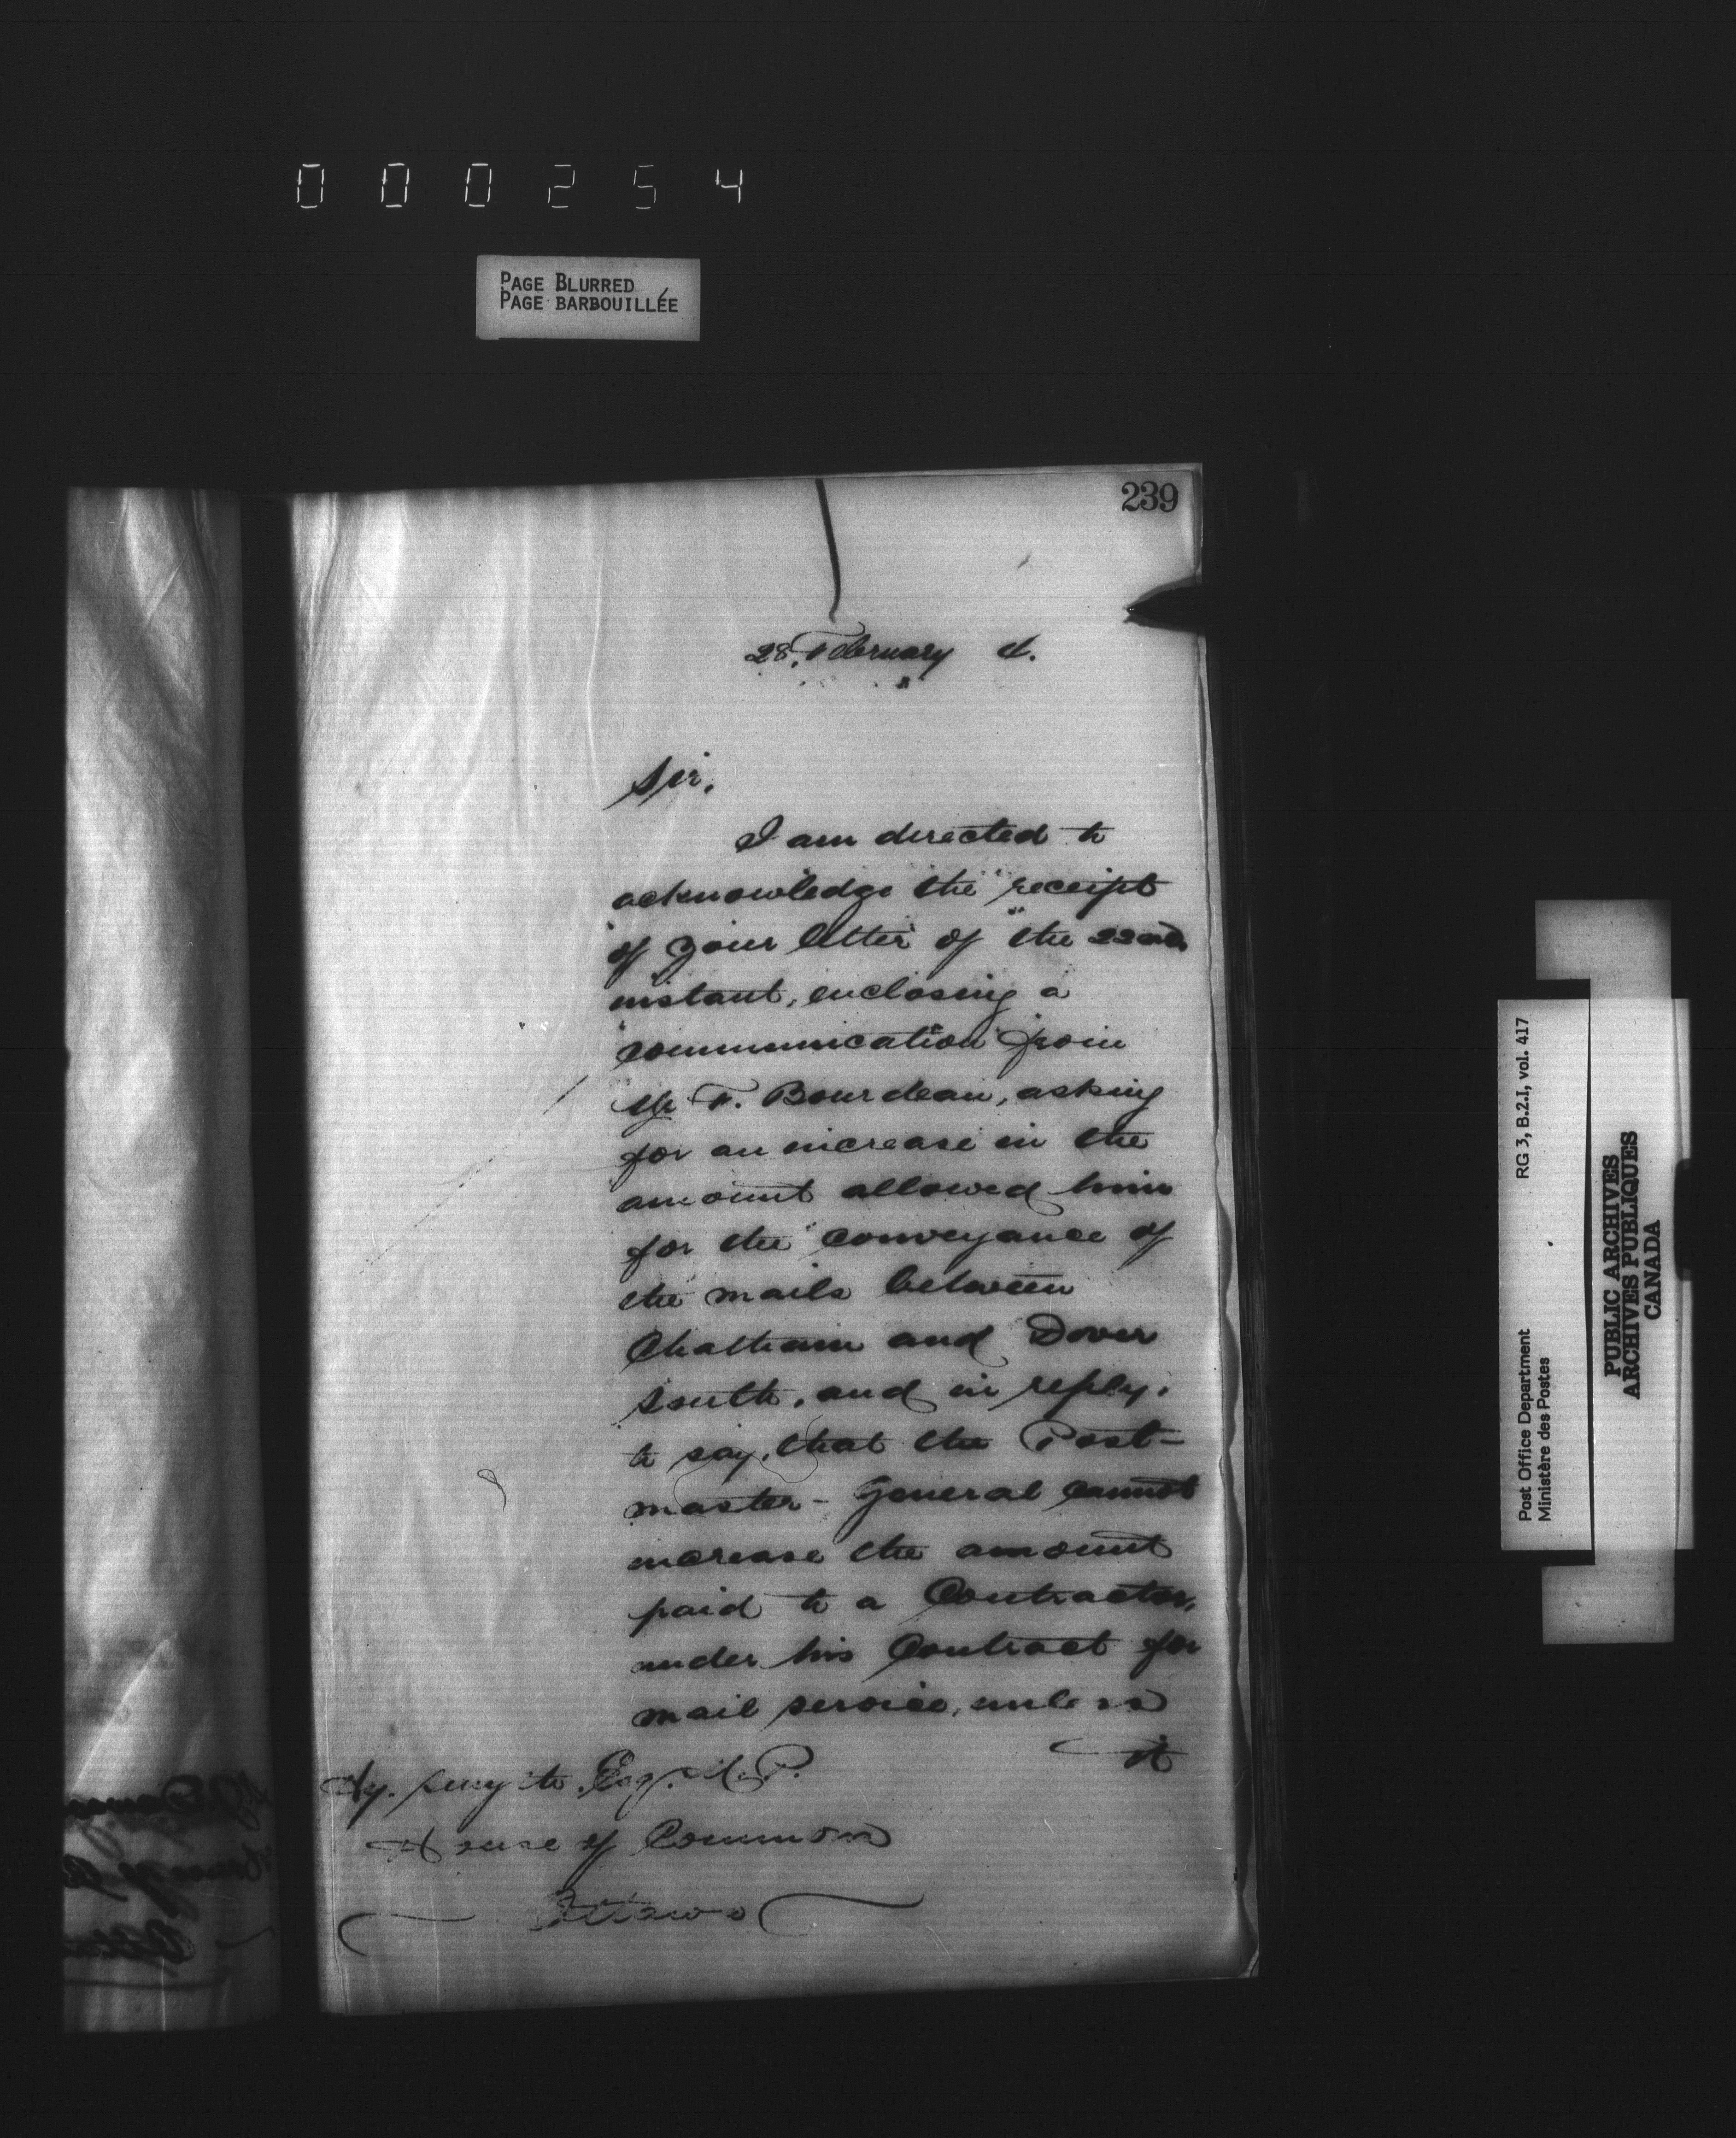 000254
PAGE BLURRED
PAGE BARBOUILLÉE
239
28. February
Sir,
I am directed to
acknowledge the receipt
of your letter of the 22nd.
instant, enclosing a
communication from
Mr F. Bourdeau, asking
for an increase in the
amount allowed him
for the conveyance of
the mails between
Chatham and Dover
South, and in reply,
to say, that the Post-
master-General cannot
increase the amount
paid to a Contractor,
under his Contract for
mail service, unless
it
Hy. Smyth. Esq. M.P.
House of Commons
Ottawa
Post Office Department RG 3, B.2.I, vol. 417
Ministère des Postes
PUBLIC ARCHIVES
ARCHIVES PUBLIQUES
CANADA